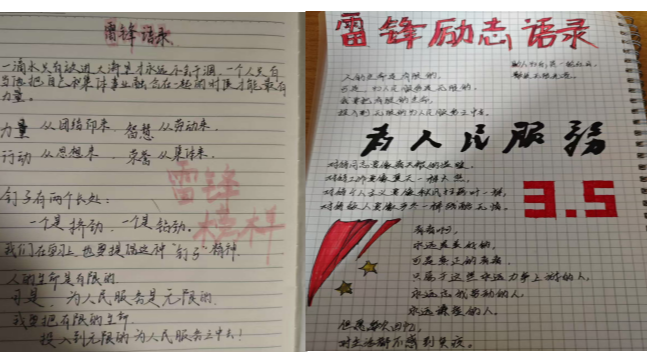 雷锋语录
一滴水只有放进大海里才永远不会干涸，一个人只有
当他把自己和集体事业融合在一起的时候才能最有
力量。
力量从团结印来，智慧从劳动来，
行动从思想来，荣誉从集体来。
雷锋
榜样
钉子有两个长处：
一个是挤劲，一个是钻劲。
我们在学习上，也要提倡这种"钉子"精神
人的生命是有限的
可是，为人民服务是无限的，
我要把有限的生命
投入到无限的为人民服务之中去！
雷锋励志语录
人的生命是有限的，
可是，为人民服务是无限的，
我要把有限的生命，
投入到无限的为人民服务之中去。
为人民服务
对待同志要像春天般的温暖，
对待工作要像夏天一样火热，
对待个人主义要像秋风扫落叶一样，
对待敌人要像严冬一样残酷无情。
3.5
青春啊，
永远是美好的，
可是真正的青春，
只属于这些永远力争上游的人，
永远忘我劳动的人，
永远谦虚的人。
但愿每次回忆，
对生活都不感到负疚。